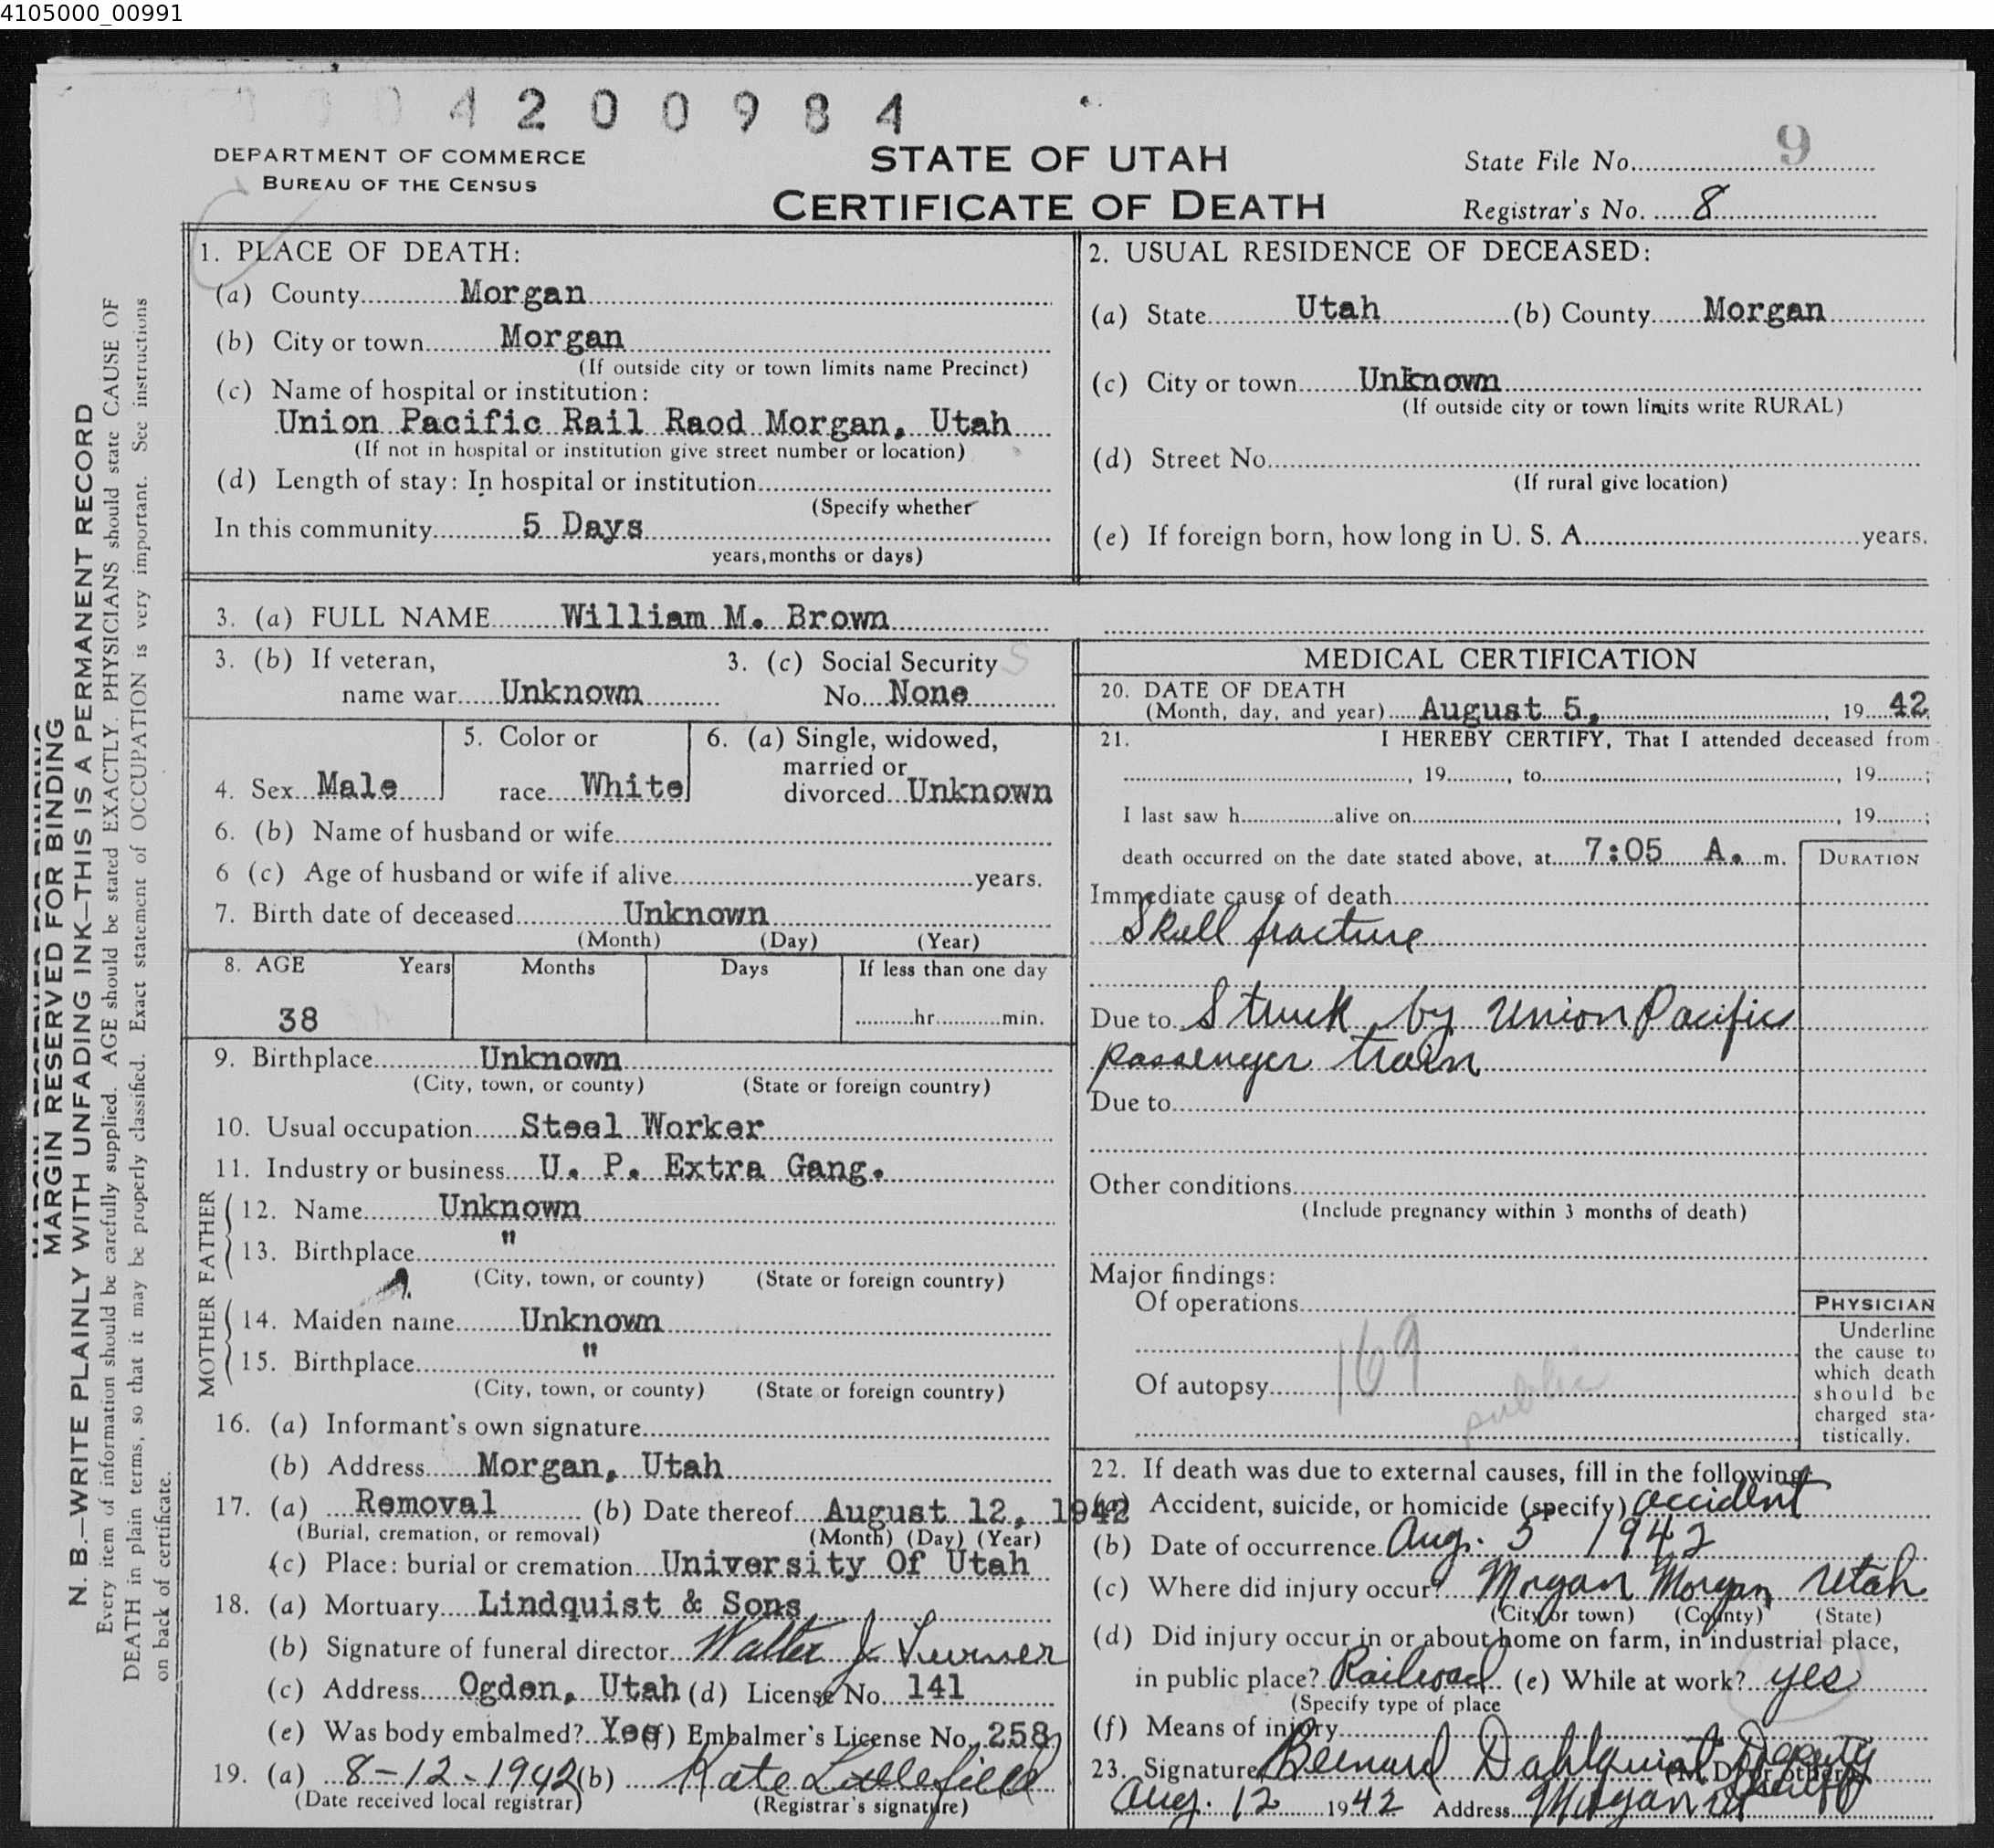 4105000_00991
4200984
DEPARTMENT OF COMMERCE
BUREAU OF THE CENSUS
STATE OF UTAH
CERTIFICATE OF DEATH
State File No. 9
Registrar's No. 8
MARGIN RESERVED FOR BINDING
N. B.—WRITE PLAINLY WITH UNFADING INK—THIS IS A PERMANENT RECORD
Every item of information should be carefully supplied. AGE should be stated EXACTLY. PHYSICIANS should state CAUSE OF
DEATH in plain terms, so that it may be properly classified. Exact statement of OCCUPATION is very important. See instructions
on back of certificate.
1. PLACE OF DEATH:
(a) County Morgan
(b) City or town Morgan
(If outside city or town limits name Precinct)
(c) Name of hospital or institution:
Union Pacific Rail Raod Morgan, Utah
(If not in hospital or institution give street number or location)
(d) Length of stay: In hospital or institution
(Specify whether
In this community 5 Days
years, months or days)
2. USUAL RESIDENCE OF DECEASED:
(a) State Utah (b) County Morgan
(c) City or town Unknown
(If outside city or town limits write RURAL)
(d) Street No.
(If rural give location)
(e) If foreign born, how long in U. S. A. years.
3. (a) FULL NAME William M. Brown
3. (b) If veteran,
name war Unknown
3. (c) Social Security
No. None
4. Sex Male
5. Color or
race White
6. (a) Single, widowed,
married or
divorced Unknown
6. (b) Name of husband or wife
6 (c) Age of husband or wife if alive years.
7. Birth date of deceased Unknown
(Month) (Day) (Year)
8. AGE Years Months Days If less than one day
38 hr. min.
9. Birthplace Unknown
(City, town, or county) (State or foreign country)
10. Usual occupation Steel Worker
11. Industry or business U. P. Extra Gang.
FATHER
12. Name Unknown
13. Birthplace "
(City, town, or county) (State or foreign country)
MOTHER
14. Maiden name Unknown
15. Birthplace "
(City, town, or county) (State or foreign country)
16. (a) Informant's own signature
(b) Address Morgan, Utah
17. (a) Removal (b) Date thereof August 12, 1942
(Burial, cremation, or removal) (Month) (Day) (Year)
(c) Place: burial or cremation University Of Utah
18. (a) Mortuary Lindquist & Sons
(b) Signature of funeral director Walter J Turner
(c) Address Ogden, Utah (d) License No. 141
(e) Was body embalmed? Yes (f) Embalmer's License No. 258
19. (a) 8-12-1942 (b) Kate Littlefield
(Date received local registrar) (Registrar's signature)
MEDICAL CERTIFICATION
20. DATE OF DEATH
(Month, day, and year) August 5, 1942
21. I HEREBY CERTIFY, That I attended deceased from
, 19 , to , 19 ;
I last saw h alive on , 19 ;
death occurred on the date stated above, at 7:05 A. m.
DURATION
Immediate cause of death
Skull fracture
Due to Struck by Union Pacific
passenger train
Due to
Other conditions
(Include pregnancy within 3 months of death)
Major findings:
Of operations
169
Of autopsy
public
PHYSICIAN
Underline
the cause to
which death
should be
charged sta-
tistically.
22. If death was due to external causes, fill in the following:
(a) Accident, suicide, or homicide (specify) accident
(b) Date of occurrence Aug. 5 1942
(c) Where did injury occur? Morgan Morgan Utah
(City or town) (County) (State)
(d) Did injury occur in or about home on farm, in industrial place,
in public place? Railroad (e) While at work? yes
(Specify type of place
(f) Means of injury
23. Signature Bernard Dahlquist Deputy
(M. D. or other) Sheriff
Aug. 12 1942 Address Morgan Ut